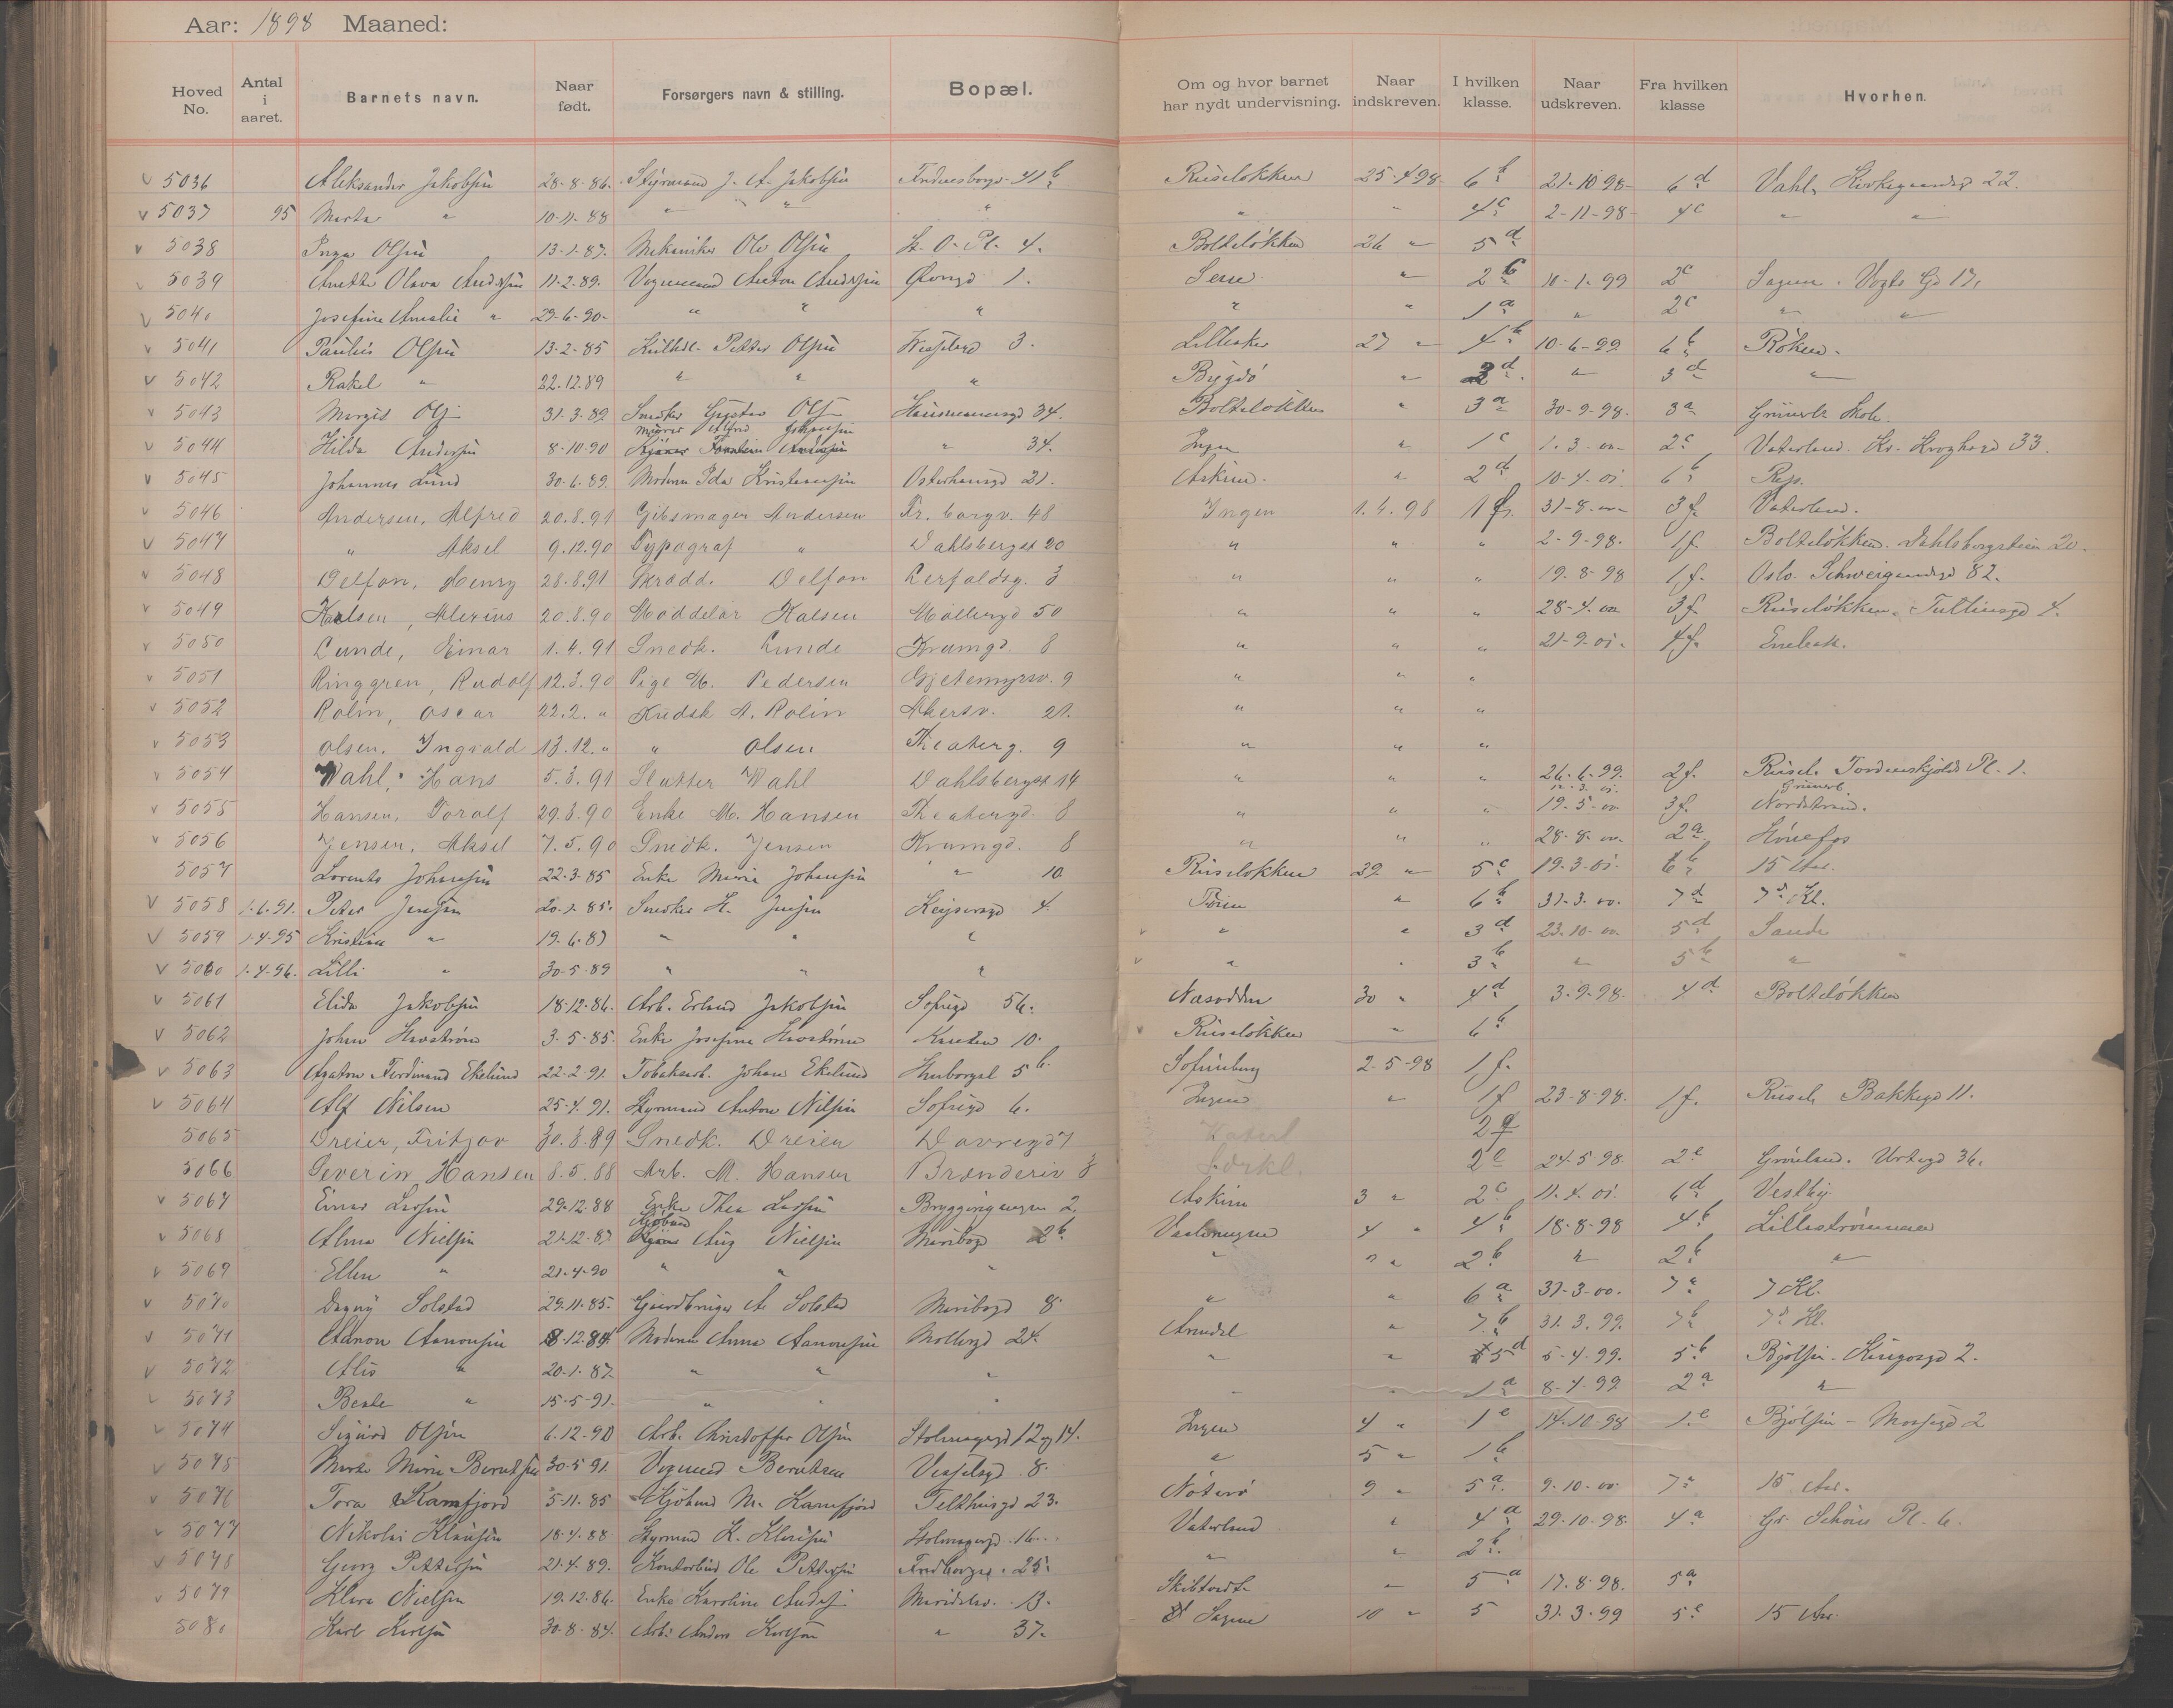 Aar: 1898 Maaned:
Hoved No. Antal i aaret. Barnets navn. Naar født. Forsørgers navn & stilling. Bopæl. Om og hvor barnet har nydt undervisning. Naar indskreven. I hvilken klasse. Naar udskreven. Fra hvilken klasse Hvorhen.
v 5036 Aleksander Jakobsen 28-8-86. Styrmand J. A. Jakobsen 41 b Ruseløkken 25-4-98 6 b 21-10-98 6 d Vahl, 22.
v 5037 95 Marta " 10-11-88 " " " " " 4 c 2-11-98- 4 c " "
v 5038 Inga Olsen 13-1-87. Mekaniker Ole Olsen St. O. Pl. 4. Bolteløkken 26 " 5 d
v 5039 Anette Olava Andersen 11-2-89. Vognmand Anton Andersen 1. " 2 b 10-1-99 2 c Sagene. Vogts Gd 17,
v 5040 Josefine Amalie " 29-6-90- " " " " " 1 a " 2 c " "
v 5041 Paulus Olsen 13-2-85 Petter Olsen 3. Lilleaker 27 " 4 b 10-6-99 6 b Røken.
v 5042 Rakel " 22.12.89 " " " Bygdø " 2 d " 3 d "
v 5043 Margit Ols 31-3-89 Snedker Gustav Ols Hausmannsgd 34. Bolteløkken " 3 a 30-9-98. 3 a Grünerl. Skole.
v 5044 Hilda Andersen 8-10-90 Murer Alfred Johansen " 34. Ingen " 1 c 1-3-00. 2 c Vaterland. Kr. Kroghsgd 33.
v 5045 Johannes Lund 30-6-89. Moderen Ida Kristiansen Osterhausgd 21. Askim. " 2 d 10-4-01 6 b Rep.
v 5046 Andersen, Alfred 20.8.91 Gibsmager Andersen Fr. borgv. 48 Ingen 1.4.98 1 f. 31-8-00 3 f. Vaterland.
v 5047 " Aksel 9.12.90 Typograf " Dahlsbergst 20 " " " 2-9-98. 1 f. Bolteløkken. Dahlsbergstien 20.
v 5048 Delfon, Henry 28.8.91 Skrædd. Delfon Lerfaldsg. 3 " " " 19-8-98 1 f. Oslo. Schweigaardsgd 82.
v 5049 Kalsen, Alexius 20.8.90 Moddelør Kalsen Møllergd 50 " " " 28-4-00 3 f. Ruseløkken. Tullinsgd 4.
v 5050 Lunde, Einar 1.4.91 Snedk. Lunde Krumgd. 8 " " " 21-9-01. 4 f. Enebak.
v 5051 Ringgren, Rudolf 12.3.90 Pige M. Pedersen Gjetemyrsv. 9 " " "
v 5052 Rolin, Oscar 22.2. " Kudsk A. Rolin Akersv. 21. " " "
v 5053 Olsen. Ingvald 13.12. " " Olsen Theaterg. 9 " " "
v 5054 Wahl, Hans 5.3.91 Slagter Wahl Dahlsbergst 14 " " " 26-6-99. 2 f. Rusel. Tordenskjolds Pl. 1.
v 5055 Hansen, Toralf 29.3.90 Enke M. Hansen Theatergd. 8 " " " 12-3-01 19-5-00 3 f. Grünerl. Nordstrand.
v 5056 Jensen, Aksel 7.5.90 Snedk. Jensen Krumgd. 8 " " " 28-8-00. 2 a Hønefos
5057 Lorents Johansen 22-3-85 Enke Marie Johansen " 10. Ruseløkken 29 " 5 c 19-3-01. 6 b 15 Aar.
v 5058 1-6-91. Peter Jensen 20-1-85. Snedker H. Jensen Keysersgd 4. " 6 b 31-3-00. 7 d 7 d Kl.
v 5059 1-4-95 Kristine " 19-6-87 " " " v " " 3 d 23-10-00 5 d Sande
v 5060 1-4-96. Lilli " 30-5-89 " " " v " " 3 b " 5 b " "
v 5061 Elida Jakobsen 18-12-86. Arb. Erland Jakobsen Sofiegd 56. Næsodden 30 " 4 d 3-9-98. 4 d Bolteløkken
v 5062 Johan 3-5-85. Enke Josefine 10. v Ruseløkken " 6 b
v 5063 Agaton Ferdinand Ekelund 22-2-91. Tobaksarb. Johan Ekelund 5 b. Sofienberg 2-5-98 1 f.
v 5064 Alf Nilsen 25-4-91. Styrmand Anton Nilsen Sofiegd 6. Ingen " 1 f 23-8-98. 1 f. Rusel. Bakkegd 11.
5065 Dreier, Fritjov 30.3.89 Snedk. Dreier Davregd 7 Vaterl 2 f
5066 Severin Hansen 8.5.88 Arb. M. Hansen Brænderiv 3 2 e 24-5-98. 2 e Grønland. Urtegd 36.
v 5067 Einar Larsen 29-12-88 Enke Thea Larsen 2. Askim 3 " 2 c 11-4-01. 6 d Vestby
v 5068 Alma Nielsen 21-12-87. Kjøbmd Aug Nielsen Maribogd 2 b. Vaalerengen 4 " 4 b 18-8-98 4 b Lillestrømmen
v 5069 Ellen " 21-4-90 " " " " " " 2 b " 2 b "
v 5070 Dagny Solstad 29-11-85. Gaardbruger A. Solstad Maribogd 8. " " 6 a 31-3-00. 7 a 7 Kl.
v 5071 Aanon Aanonsen 8-12-84. Moderen Anna Aanonsen Møllergd 24. Arendal " 7 b 31.3.99. 7 b 7 d Kl.
v 5072 Alis " 20-1-87. " " " " " 5 d 5-4-99. 5 b Bjølsen. Kingosgd 2.
v 5073 " 15-5-91. " " " " " 1 a 8-4-99 2 a "
v 5074 Sigurd Olsen 6-12-90 Arb. Christoffer Olsen Stolmagergd 12 og 14. Ingen 4 " 1 e 14-10-98 1 e Bjølsen - Mossegd 2
v 5075 Marta Marie Berntsen 30-5-91. Vognmd Berntsen Vesselsgd 8. " 5 " 1 b
v 5076 Tora Kamfjord 5-11-85 Kjøbmd M. Kamfjord Telthusgd 23. Nøterø 9 " 5 a. 9-10-00 7 a 15 Aar.
v 5077 Nikolai Klausen 18-4-88 Styrmand K. Klausen Stolmagergd. 16. Vaterland " 4 a 29-10-98. 4 a Gr. Schous Pl. 6.
v 5078 Georg Pettersen 21-4-89. Kontorbud Ole Pettersen 25. " " 2 b.
v 5079 Klara Nielsen 19.12.86. Enke Karoline Maridalsv. 13. Skibtvedt " 5 a 17-8-98. 5 a
5080 Karl Karlsen 30-8-84. Arb. Anders Karlsen " 37. Sagene 10 " 5 31-3-99 5 e 15 Aar.